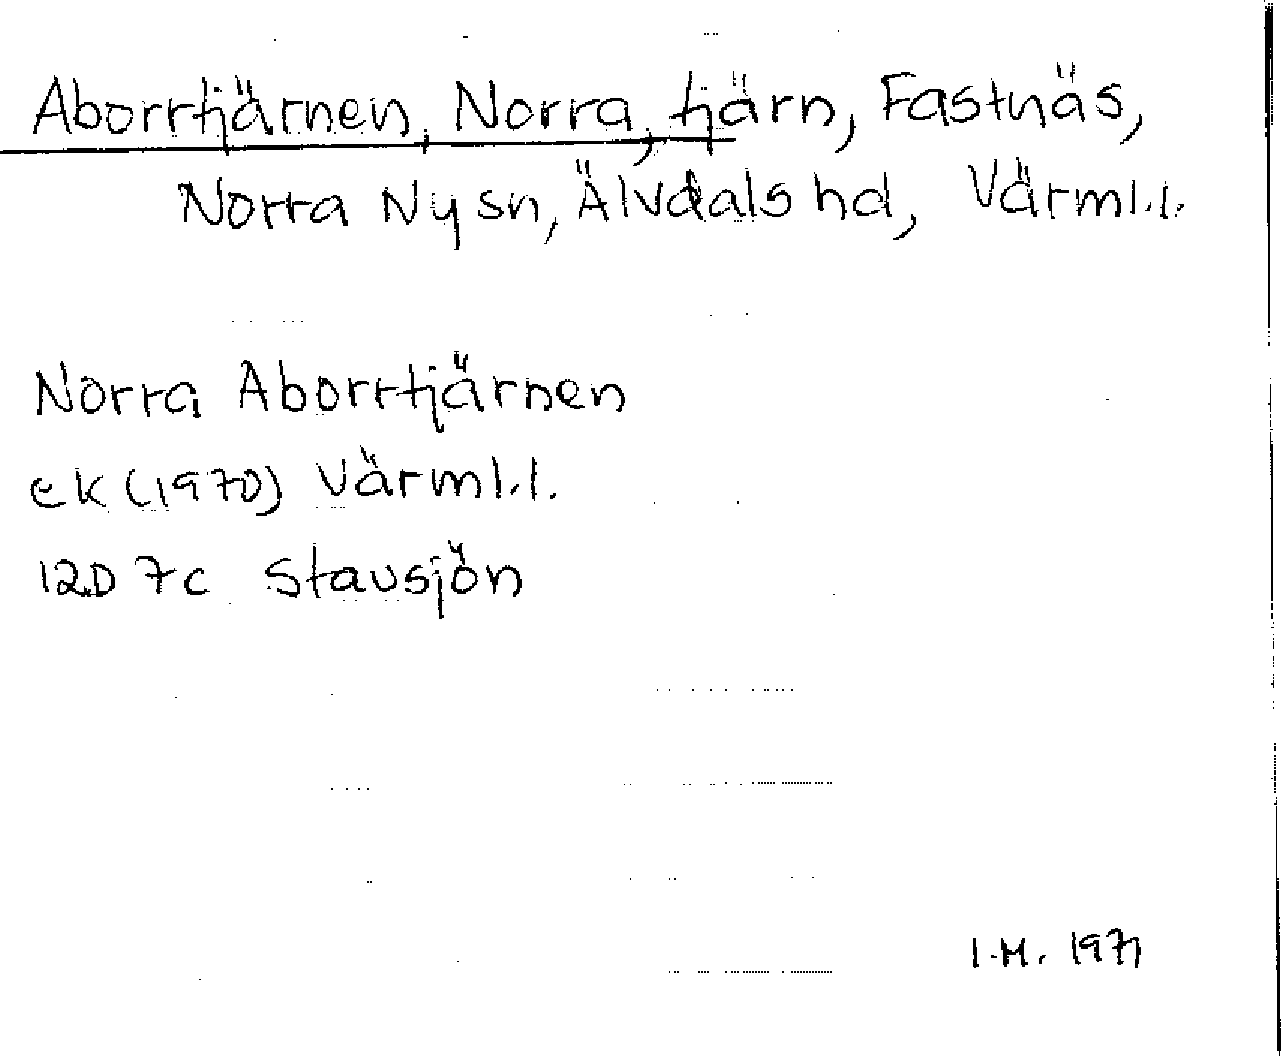 Aborrtjärnen, Norra, tjärn, Fastnäs,
Norra Ny sn, Älvdals hd, Värml.l.
Norra Aborrtjärnen
ek (1970) Värml.l.
12D 7c Stausjön
I.M. 1971